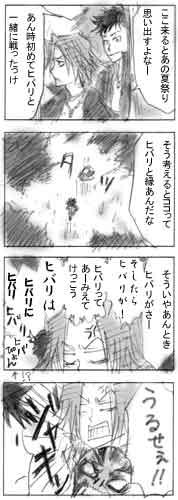 ここ来るとあの夏祭り
思い出すよなー
あん時初めてヒバリと
一緒に戦ったっけ
そう考えるとココって
ヒバリと縁あんだな
そういやあんとき
ヒバリがさー
そしたら
ヒバリが!
ヒバリって
あーみえて
けっこう
ヒバリは
ヒバリに
ヒバリ
ヒバ
うるせえ!!